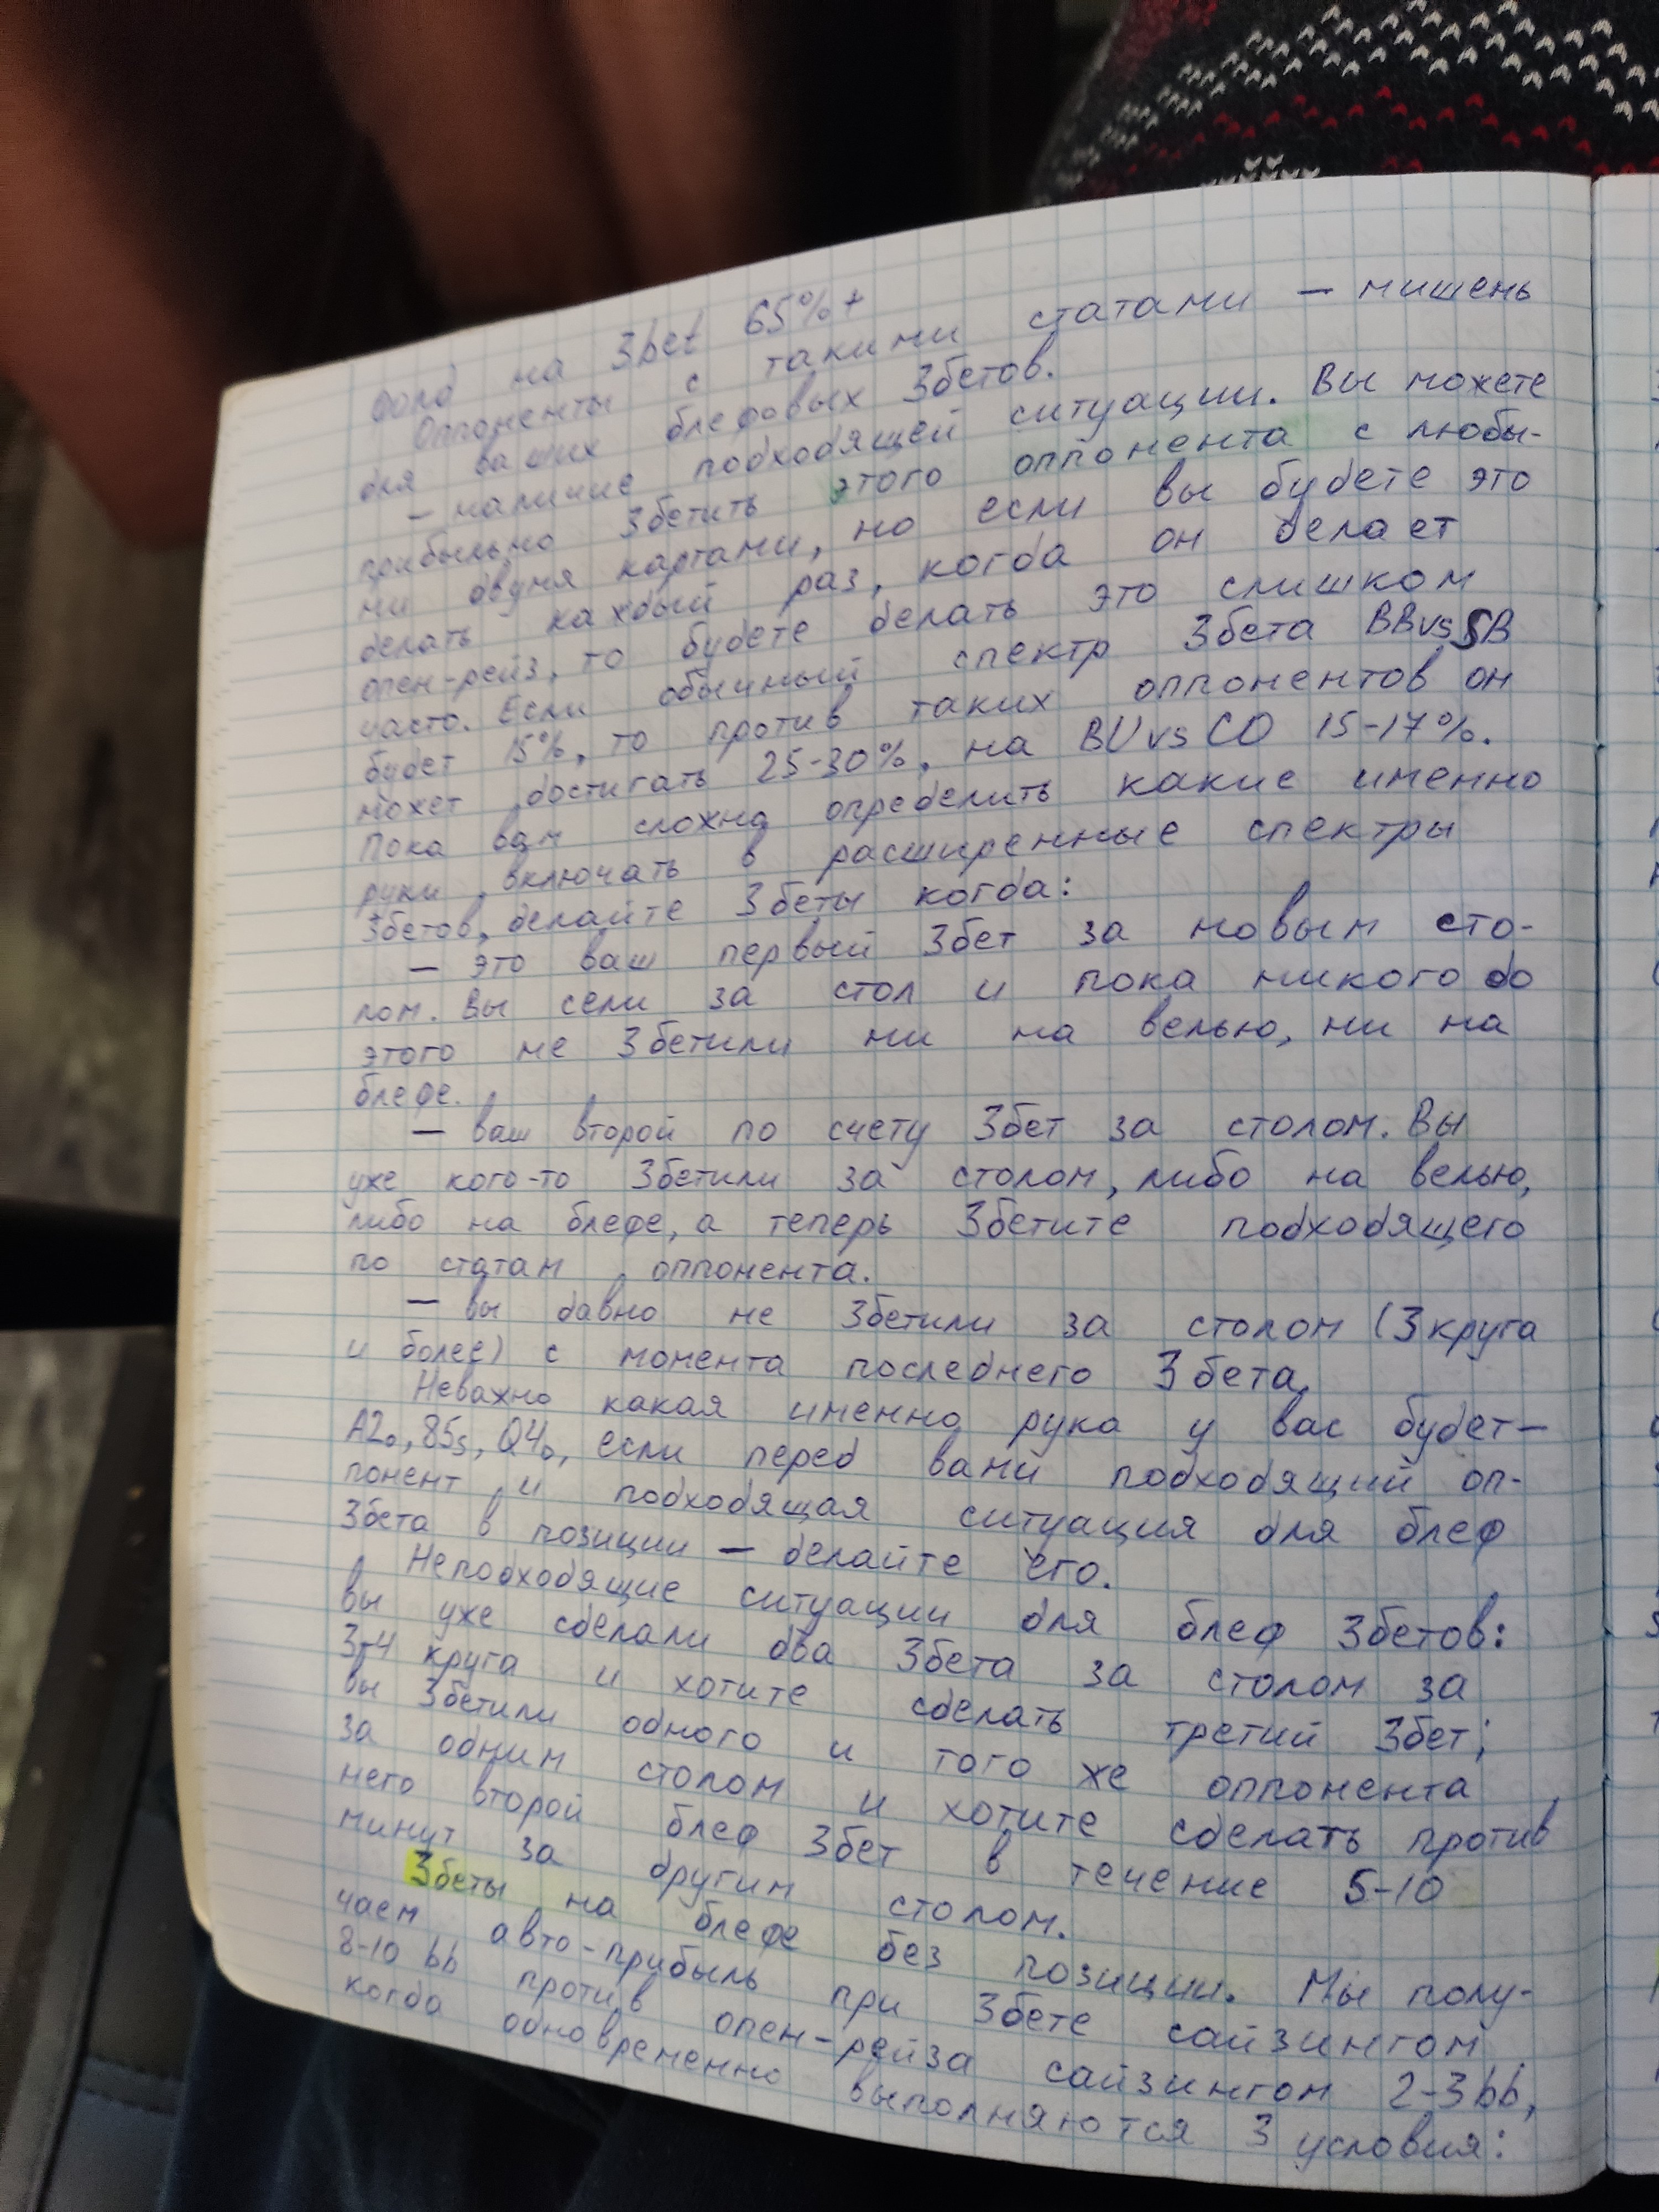 Фолд на 3bet 65%+
Оппоненты с такими статами — мишень
для ваших блефовых 3бетов.
— наличие подходящей ситуации. Вы можете
прибыльно 3бетить этого оппонента с любы-
ми двумя картами, но если вы будете это
делать каждый раз, когда он делает
опен-рейз, то будете делать это слишком
часто. Если обычный спектр 3бета BBvsSB
будет 15%, то против таких оппонентов он
может достигать 25-30%, на BUvsCO 15-17%.
Пока вам сложно определить какие именно
руки включать в расширенные спектры
3бетов, делайте 3беты когда:
— это ваш первый 3бет за новым сто-
лом. Вы сели за стол и пока никого до
этого не 3бетили ни на велью, ни на
блефе.
— ваш второй по счету 3бет за столом. Вы
уже кого-то 3бетили за столом, либо на велью,
либо на блефе, а теперь 3бетите подходящего
по статам оппонента.
— вы давно не 3бетили за столом (3 круга
и более) с момента последнего 3бета.
Неважно какая именно рука у вас будет —
A2o, 85s, Q4o, если перед вами подходящий оп-
понент и подходящая ситуация для блеф
3бета в позиции — делайте его.
Неподходящие ситуации для блеф 3бетов:
вы уже сделали два 3бета за столом за
3-4 круга и хотите сделать третий 3бет;
вы 3бетили одного и того же оппонента
за одним столом и хотите сделать против
него второй блеф 3бет в течение 5-10
минут за другим столом.
3беты на блефе без позиции. Мы полу-
чаем авто-прибыль при 3бете сайзингом
8-10 bb против опен-рейза сайзингом 2-3bb,
когда одновременно выполняются 3 условия: